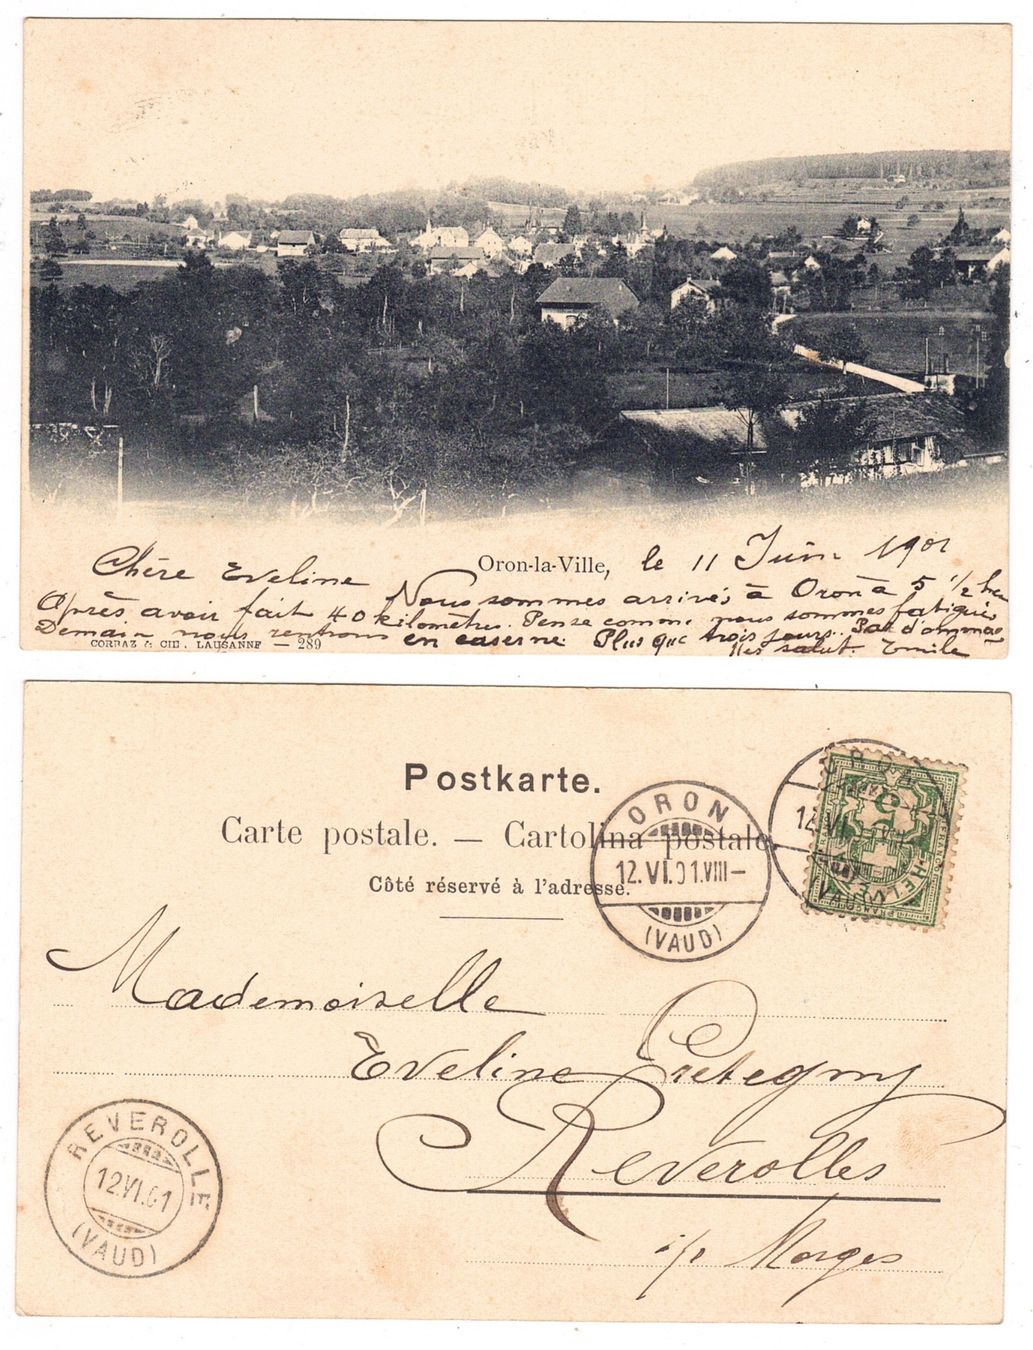 Oron-la-Ville, le 11 Juin 1901
Chère Eveline
Nous sommes arrivés à Oron à 5 1/2 heu
Après avoir fait 40 kilomètres. Pense comme nous sommes fatigués
Demain nous rentrons en caserne. Plus que trois jours. Pas d'
CORBAZ & CIE, LAUSANNE — 289
salut. Emile
Postkarte.
Carte postale. — Cartolina postale.
Côté réservé à l'adresse.
ORON
12.VI.01.VIII—
(VAUD)
ORON
12.VI
(VAUD)
5
FRANCO
HELVETIA
Mademoiselle
Eveline Pretegny
Reverolles
s/ Morges
REVEROLLE
12.VI.01
(VAUD)